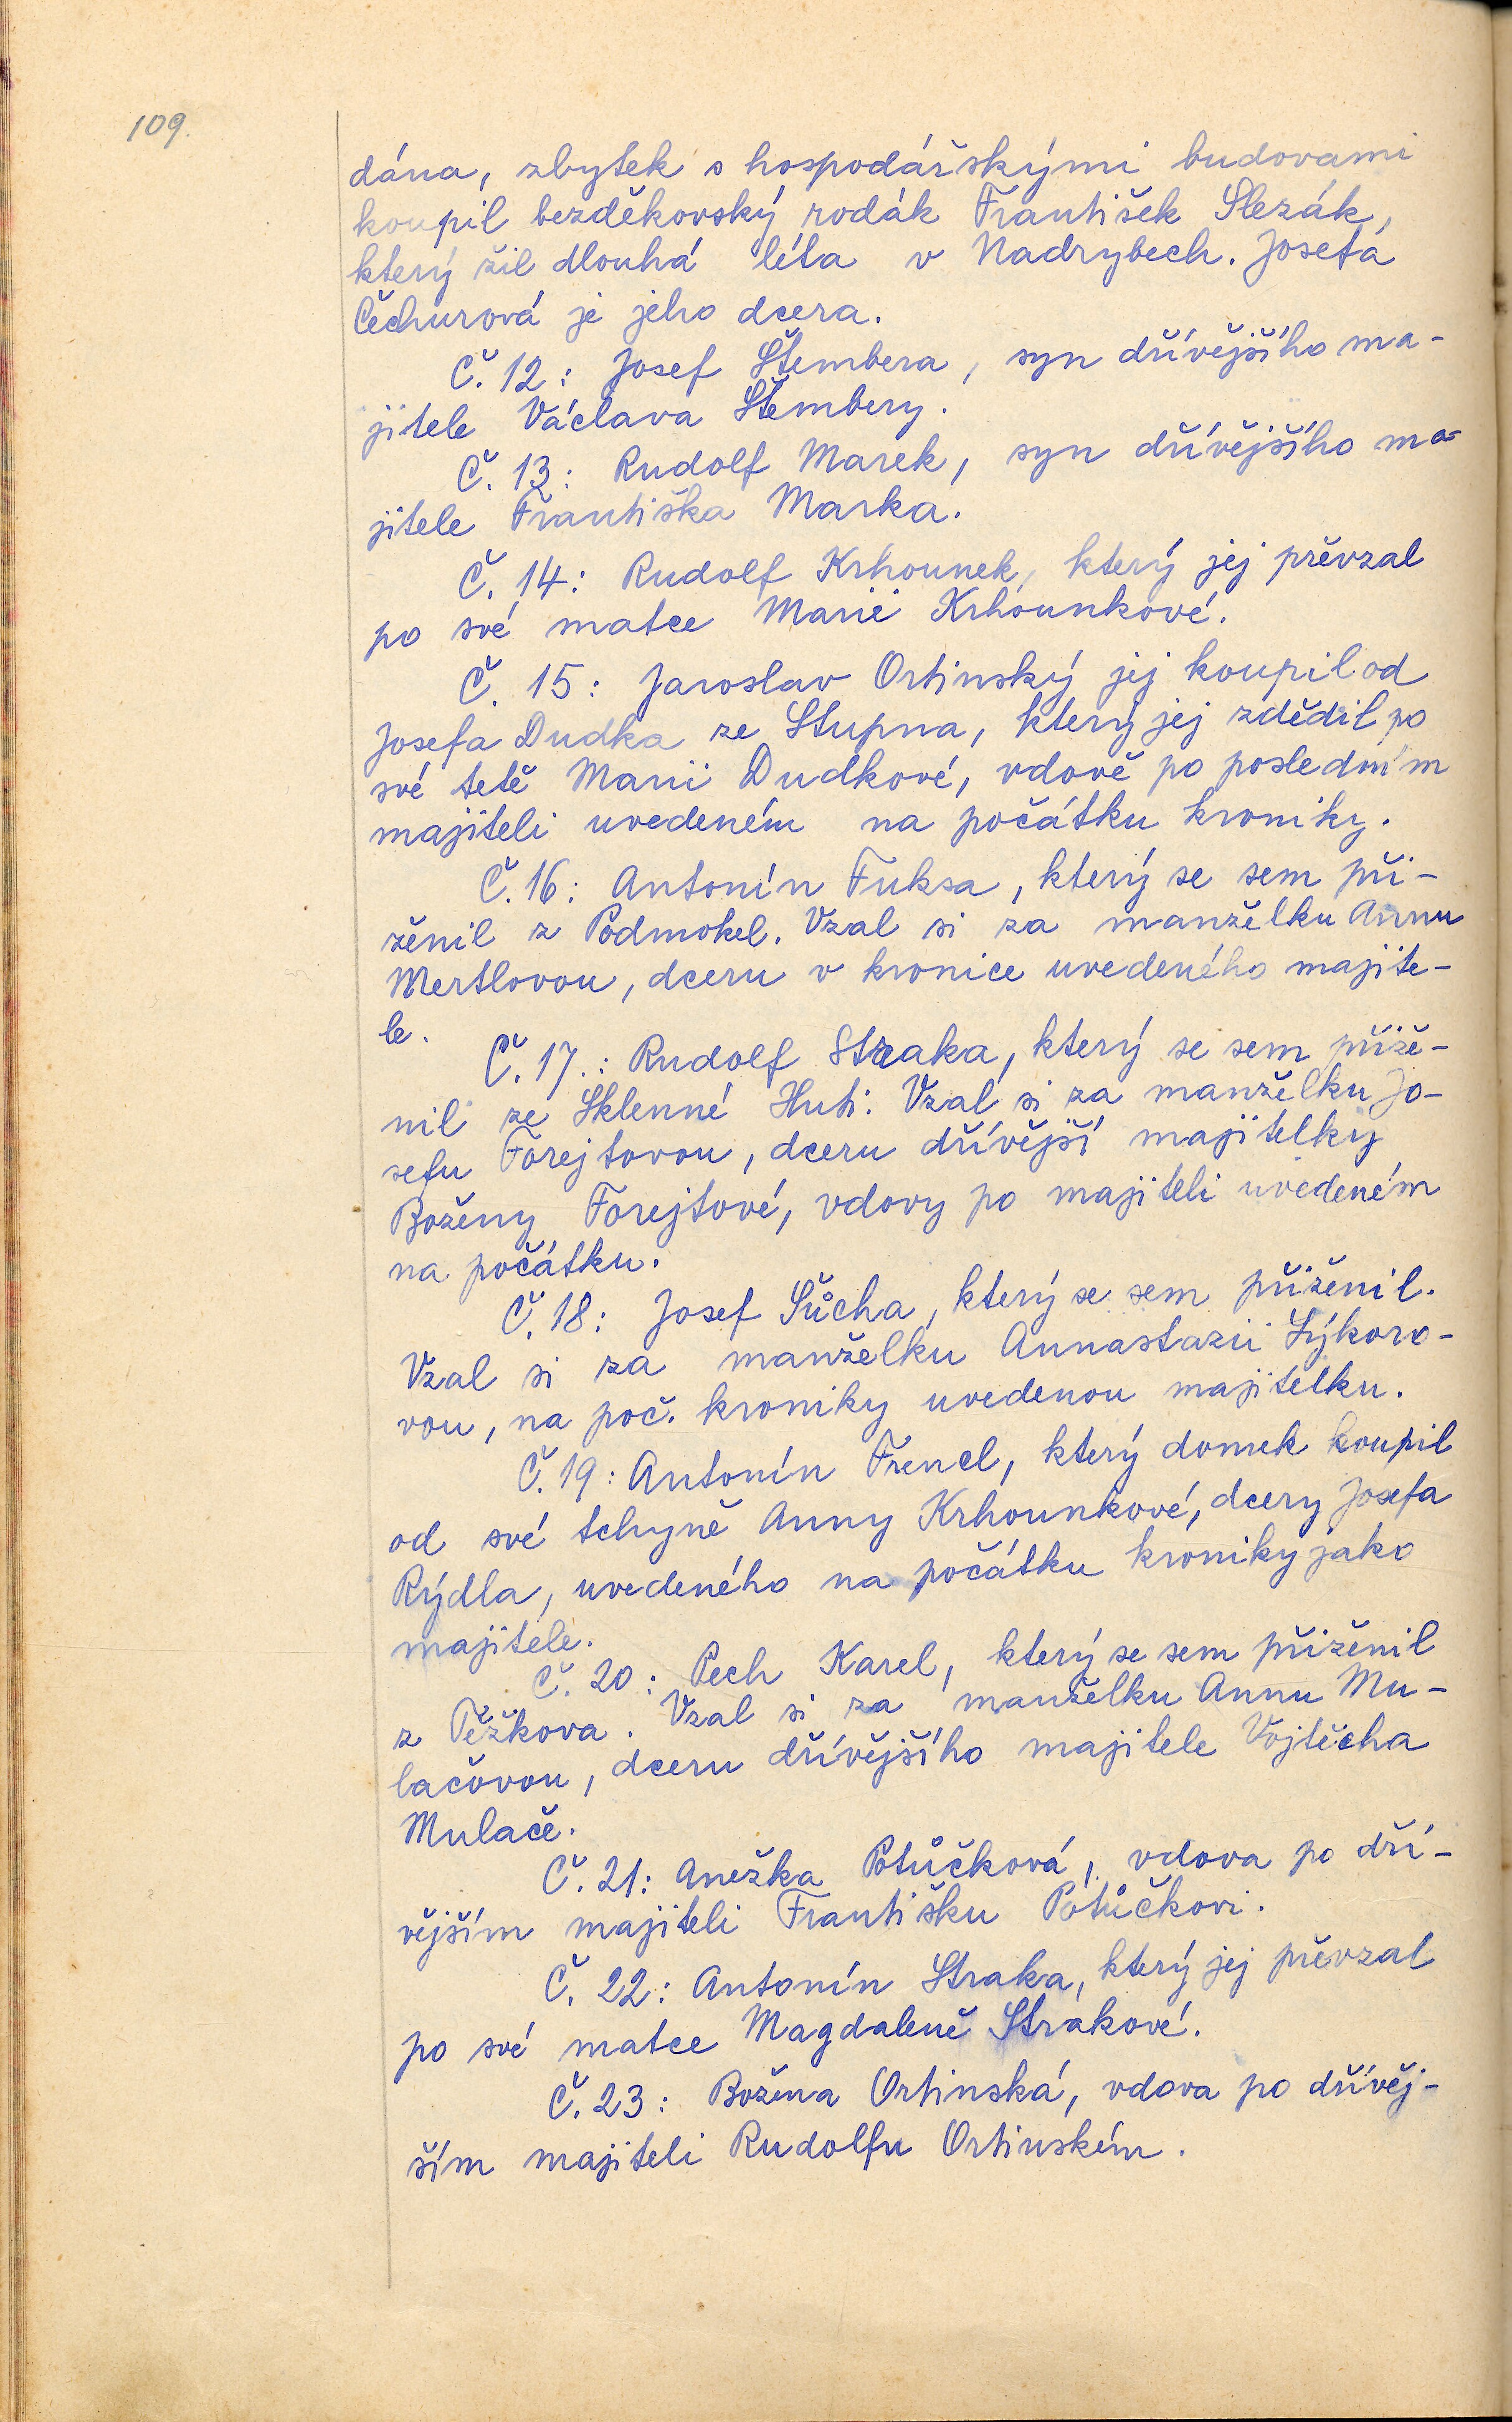 109.
dána, zbytek s hospodářskými budovami
koupil bezděkovský rodák František Slezák,
který žil dlouhá léta v Nadrybech. Josefa
Čechurová je jeho dcera.
Č. 12: Josef Štembera, syn dřívějšího ma-
jitele Václava Štembery.
Č. 13: Rudolf Marek, syn dřívějšího ma-
jitele Františka Marka.
Č. 14: Rudolf Krhounek, který jej převzal
po své matce Marii Krhounkové.
Č. 15: Jaroslav Ortinský jej koupil od
Josefa Dudka ze Stupna, který jej zdědil po
své tetě Marii Dudkové, vdově po posledním
majiteli uvedeném na počátku kroniky.
Č. 16: Antonín Fuksa, který se sem při-
ženil z Podmokel. Vzal si za manželku Annu
Mertlovou, dceru v kronice uvedeného majite-
le.
Č. 17.: Rudolf Straka, který se sem přiže-
nil ze Sklenné Huti. Vzal si za manželku Jo-
sefu Forejtovou, dceru dřívější majitelky
Boženy Forejtové, vdovy po majiteli uvedeném
na počátku.
Č. 18: Josef Šůcha, který se sem přiženil.
Vzal si za manželku Annastazii Sýkoro-
vou, na poč. kroniky uvedenou majitelku.
Č. 19: Antonín Frencl, který domek koupil
od své tchyně Anny Krhounkové, dcery Josefa
Rýdla, uvedeného na počátku kroniky jako
majitele.
Č. 20: Pech Karel, který se sem přiženil
z Těžkova. Vzal si za manželku Annu Mu-
lačovou, dceru dřívějšího majitele Vojtěcha
Mulače.
Č. 21: Anežka Potůčková, vdova po dří-
vějším majiteli Františku Potůčkovi.
Č. 22: Antonín Straka, který jej převzal
po své matce Magdaleně Strakové.
Č. 23: Božena Ortinská, vdova po dřívěj-
ším majiteli Rudolfu Ortinském.